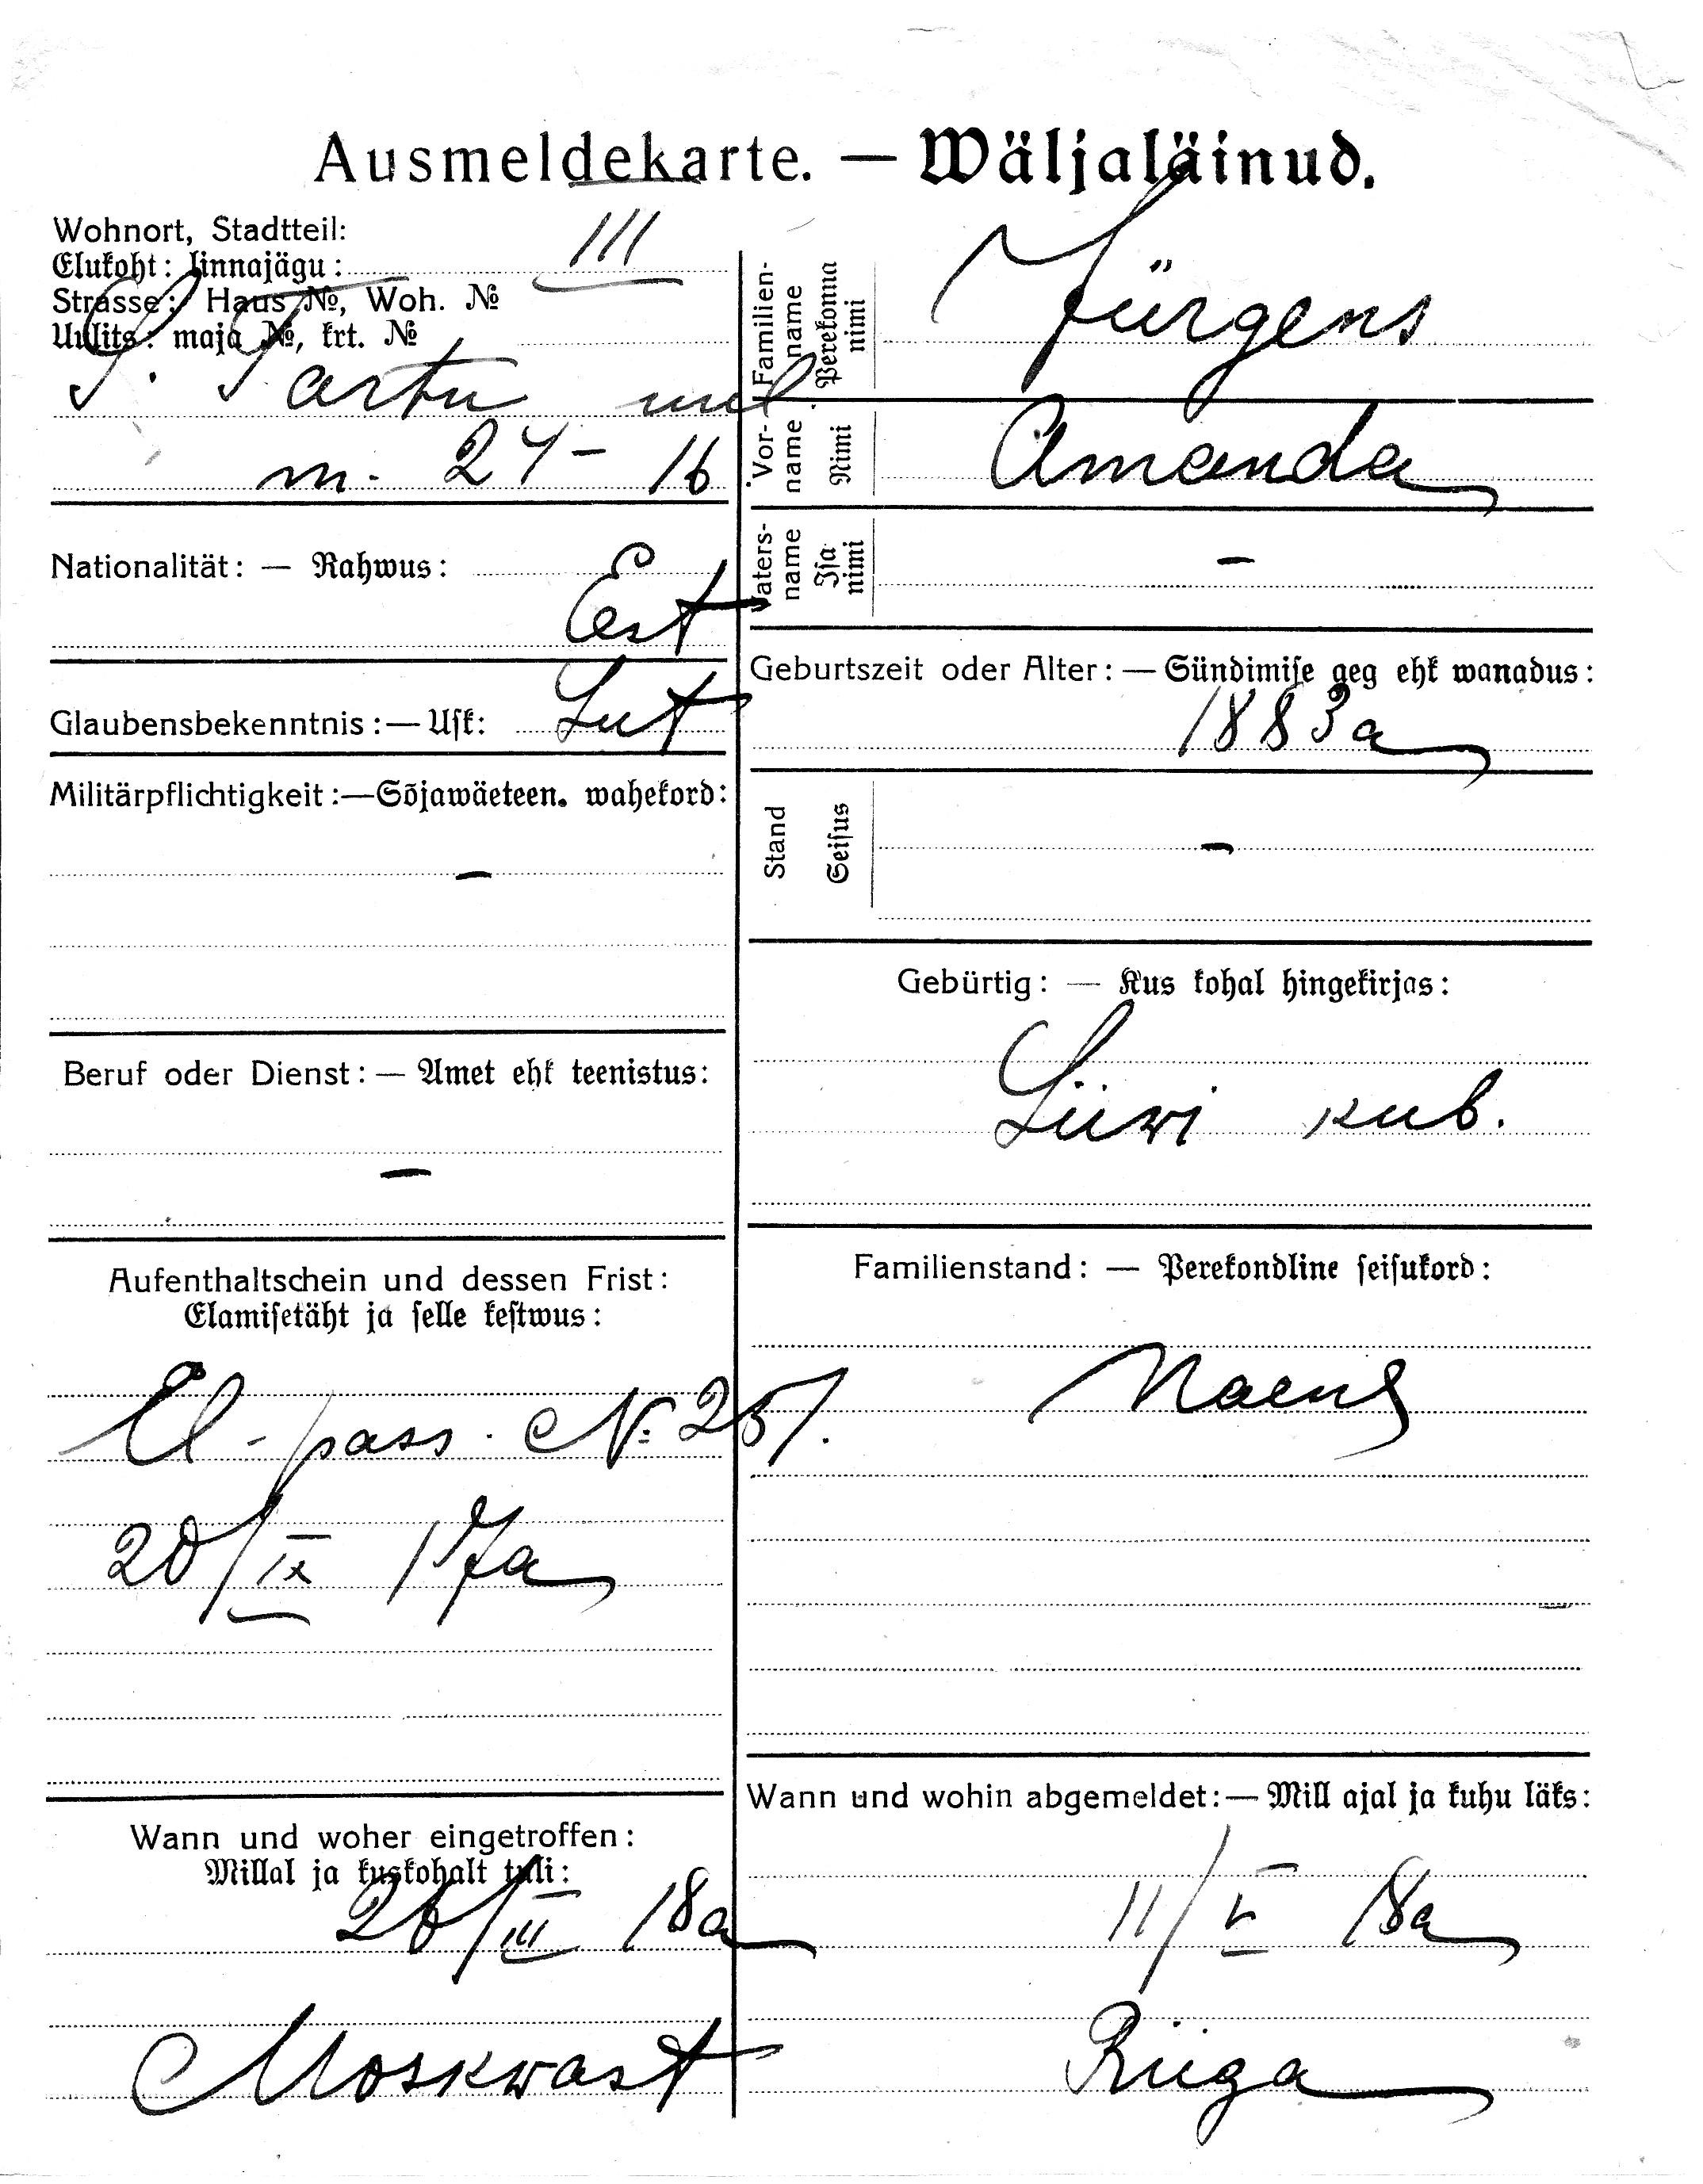 Ausmeldekarte. — Wäljaläinud.
Wohnort, Stadtteil:
Elukoht: linnajägu: III
Strasse: Haus №, Woh. №
Uulits: maja №, krt. №
S. Tartu
m. 24 - 16
Nationalität: — Rahwus:
Est
Glaubensbekenntnis: — Usk: Lut
Militärpflichtigkeit: — Sõjawäeteen. wahekord:
—
Beruf oder Dienst: — Amet ehk teenistus:
—
Aufenthaltschein und dessen Frist:
Elamisetäht ja selle kestwus:
El-pass. № 251.
20/IX 17a
Wann und woher eingetroffen:
Millal ja kuskohalt tuli:
26/III 18a
Moskwast
Familien-
name
Perekonna
nimi
Jürgens
Vor-
name
Nimi
Amanda
Vaters-
name
Isa
nimi
—
Geburtszeit oder Alter: — Sündimise aeg ehk wanadus:
1883a
Stand
Seisus
—
Gebürtig: — Kus kohal hingekirjas:
Liiwi kub.
Familienstand: — Perekondline seisukord:
Naene
Wann und wohin abgemeldet: — Mill ajal ja kuhu läks:
11/V 18a
Riiga